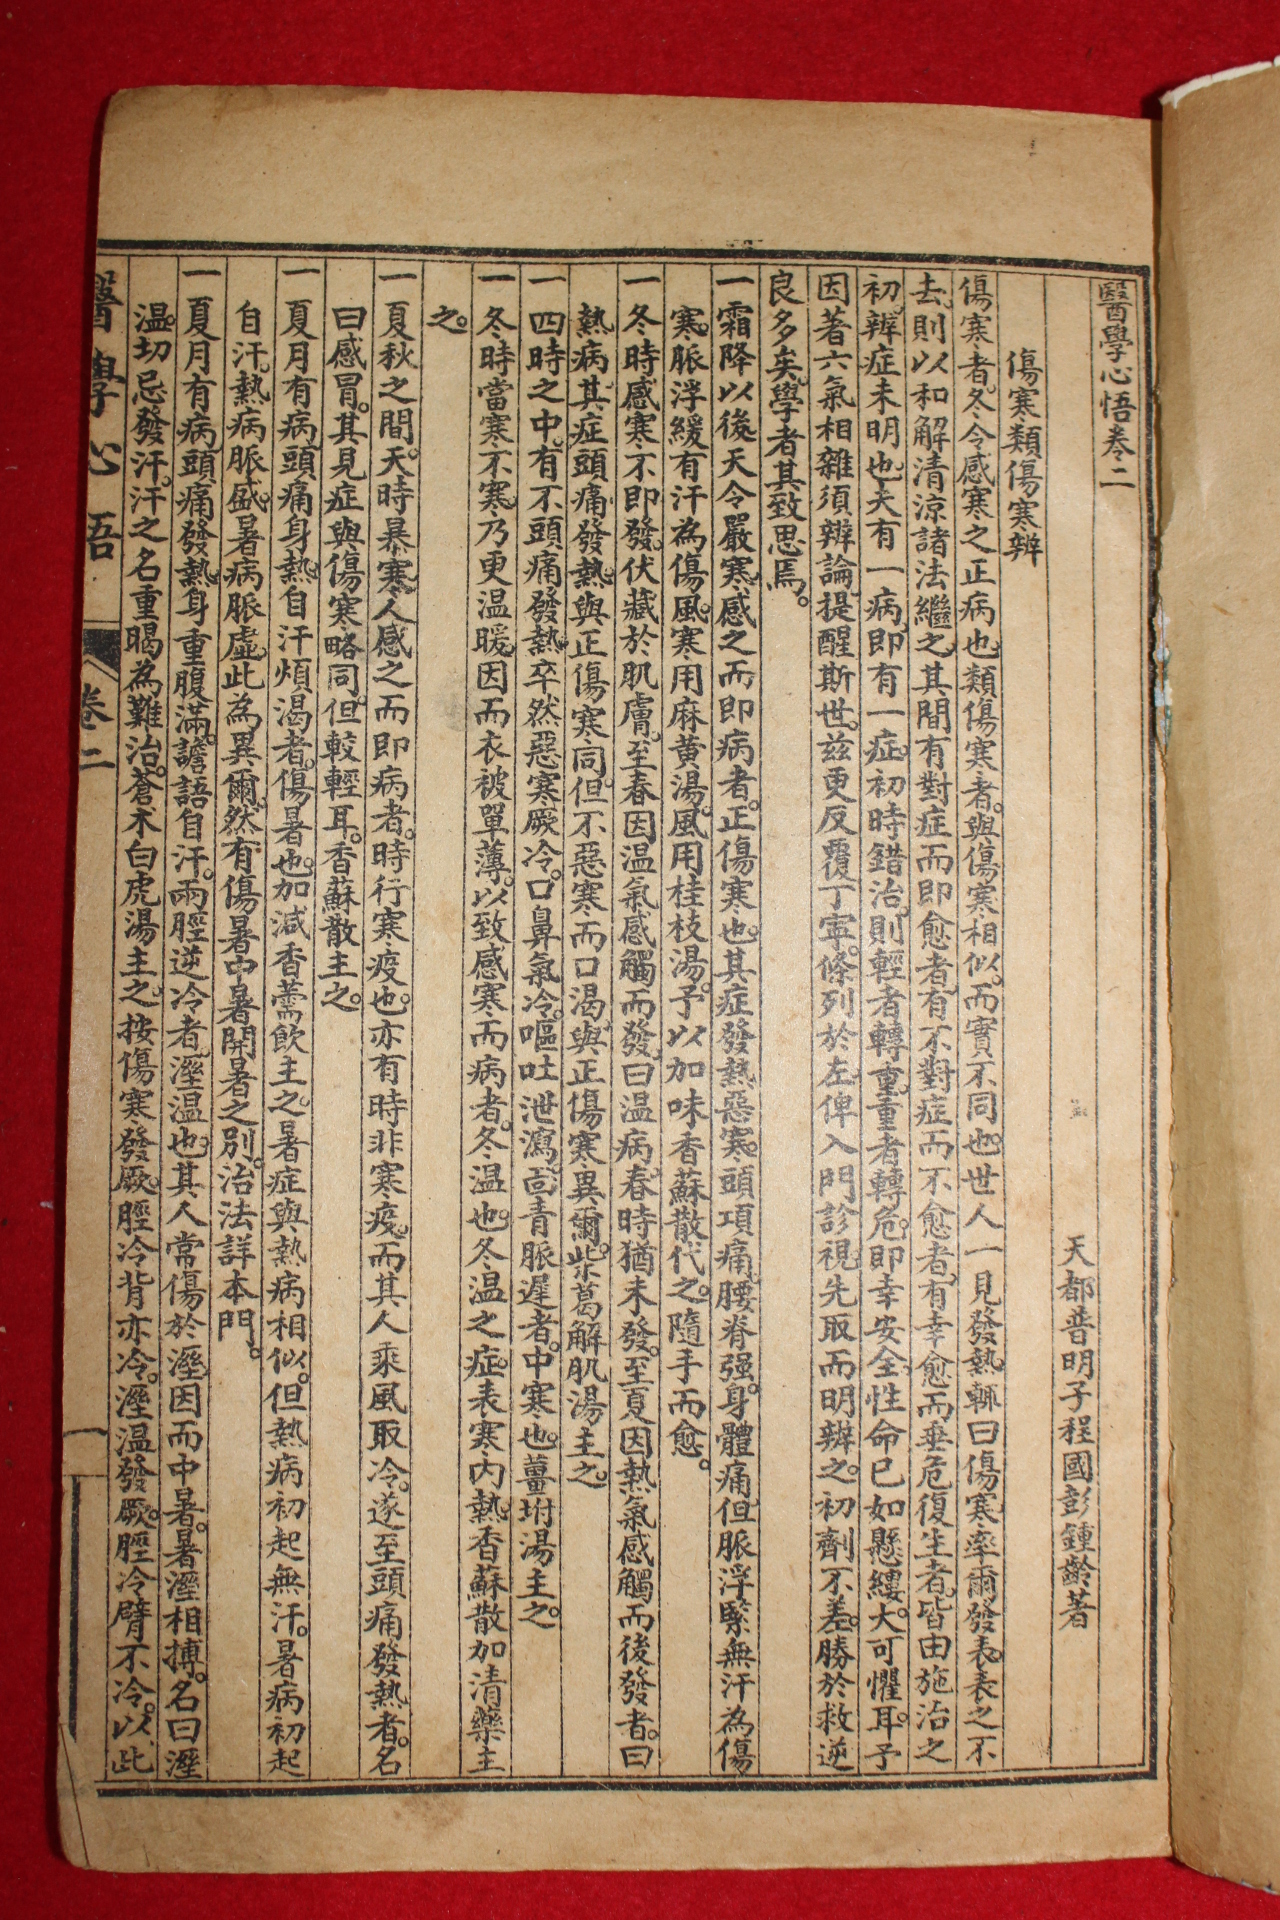 醫學心悟卷二
天都普明子程國彭鍾齡著
傷寒類傷寒辨
傷寒者。冬令感寒之正病也。類傷寒者。與傷寒相似。而實不同也。世人一見發熱輒曰傷寒。率爾發表。表之不
去。則以和解清涼諸法繼之。其間有對症而即愈者。有不對症而不愈者。有幸愈而垂危復生者。皆由施治之
初。辨症未明也。夫有一病。即有一症。初時錯治。則輕者轉重。重者轉危。即幸安全。性命已如懸縷。大可懼耳。予
因著六氣相雜須辨論。提醒斯世。茲更反覆丁寧。條列於左。俾入門診視。先取而明辨之。初劑不差。勝於救逆
良多矣。學者其致思焉。
一霜降以後天令嚴寒。感之而即病者。正傷寒也。其症發熱惡寒。頭項痛。腰脊强。身體痛。但脈浮緊無汗為傷
寒。脈浮緩有汗為傷風。寒用麻黃湯。風用桂枝湯。予以加味香蘇散代之。隨手而愈。
一冬時感寒不即發。伏藏於肌膚。至春因温氣感觸而發。曰温病。春時猶未發。至夏因熱氣感觸而後發者。曰
熱病。其症頭痛發熱。與正傷寒同。但不惡寒而口渴。與正傷寒異爾。柴葛解肌湯主之。
一四時之中。有不頭痛發熱。卒然惡寒厥冷。口鼻氣冷。嘔吐泄瀉。面青脈遲者。中寒也。薑坿湯主之。
一冬時當寒不寒。乃更温暖。因而衣被單薄。以致感寒而病者。冬温也。冬温之症。表寒内熱。香蘇散加清藥主
之。
一夏秋之間。天時暴寒。人感之而即病者。時行寒疫也。亦有時非寒疫。而其人乘風取冷。遂至頭痛發熱者。名
曰感冒。其見症與傷寒略同。但較輕耳。香蘇散主之。
一夏月有病頭痛身熱。自汗煩渴者。傷暑也。加減香薷飲主之。暑症與熱病相似。但熱病初起無汗。暑病初起
自汗。熱病脈盛。暑病脈虛。此為異爾。然有傷暑中暑閉暑之別。治法詳本門。
一夏月有病。頭痛發熱。身重腹滿。譫語自汗。兩脛逆冷者。溼温也。其人常傷於溼因而中暑。暑溼相搏。名曰溼
温。切忌發汗。汗之名重暍為難治。蒼朮白虎湯主之。按傷寒發厥。脛冷背亦冷。溼温發厥。脛冷臂不冷。以此
醫學心悟
卷二
一